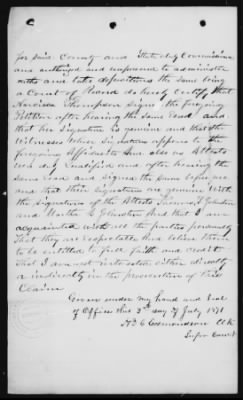 for said County and State duly Commissioned
and authorized and empowered to administer
oaths and take depositions the same being
a Court of Record do hereby Certify that
Narcissa Thompson signs the foregoing
Petition after hearing the same read and
that her Signature is genuine and that the
Witnesses whose Signature appears to the
foregoing Affidavits and also as Attests
is duly Qualified and after hearing the
same read and signed the same before me
and that their signature are genuine with
the signature of the Attests Thomas J Johnston
and Martha G Johnston And that I am
acquainted with all the parties personally
That they are respectable and believe them
to be entitled to full faith and credit
That I am not interested either directly
or indirectly in the prosecution of this
Claim
Given under my hand and Seal
of Office this 3rd day of July 1871
Clk
Super Court